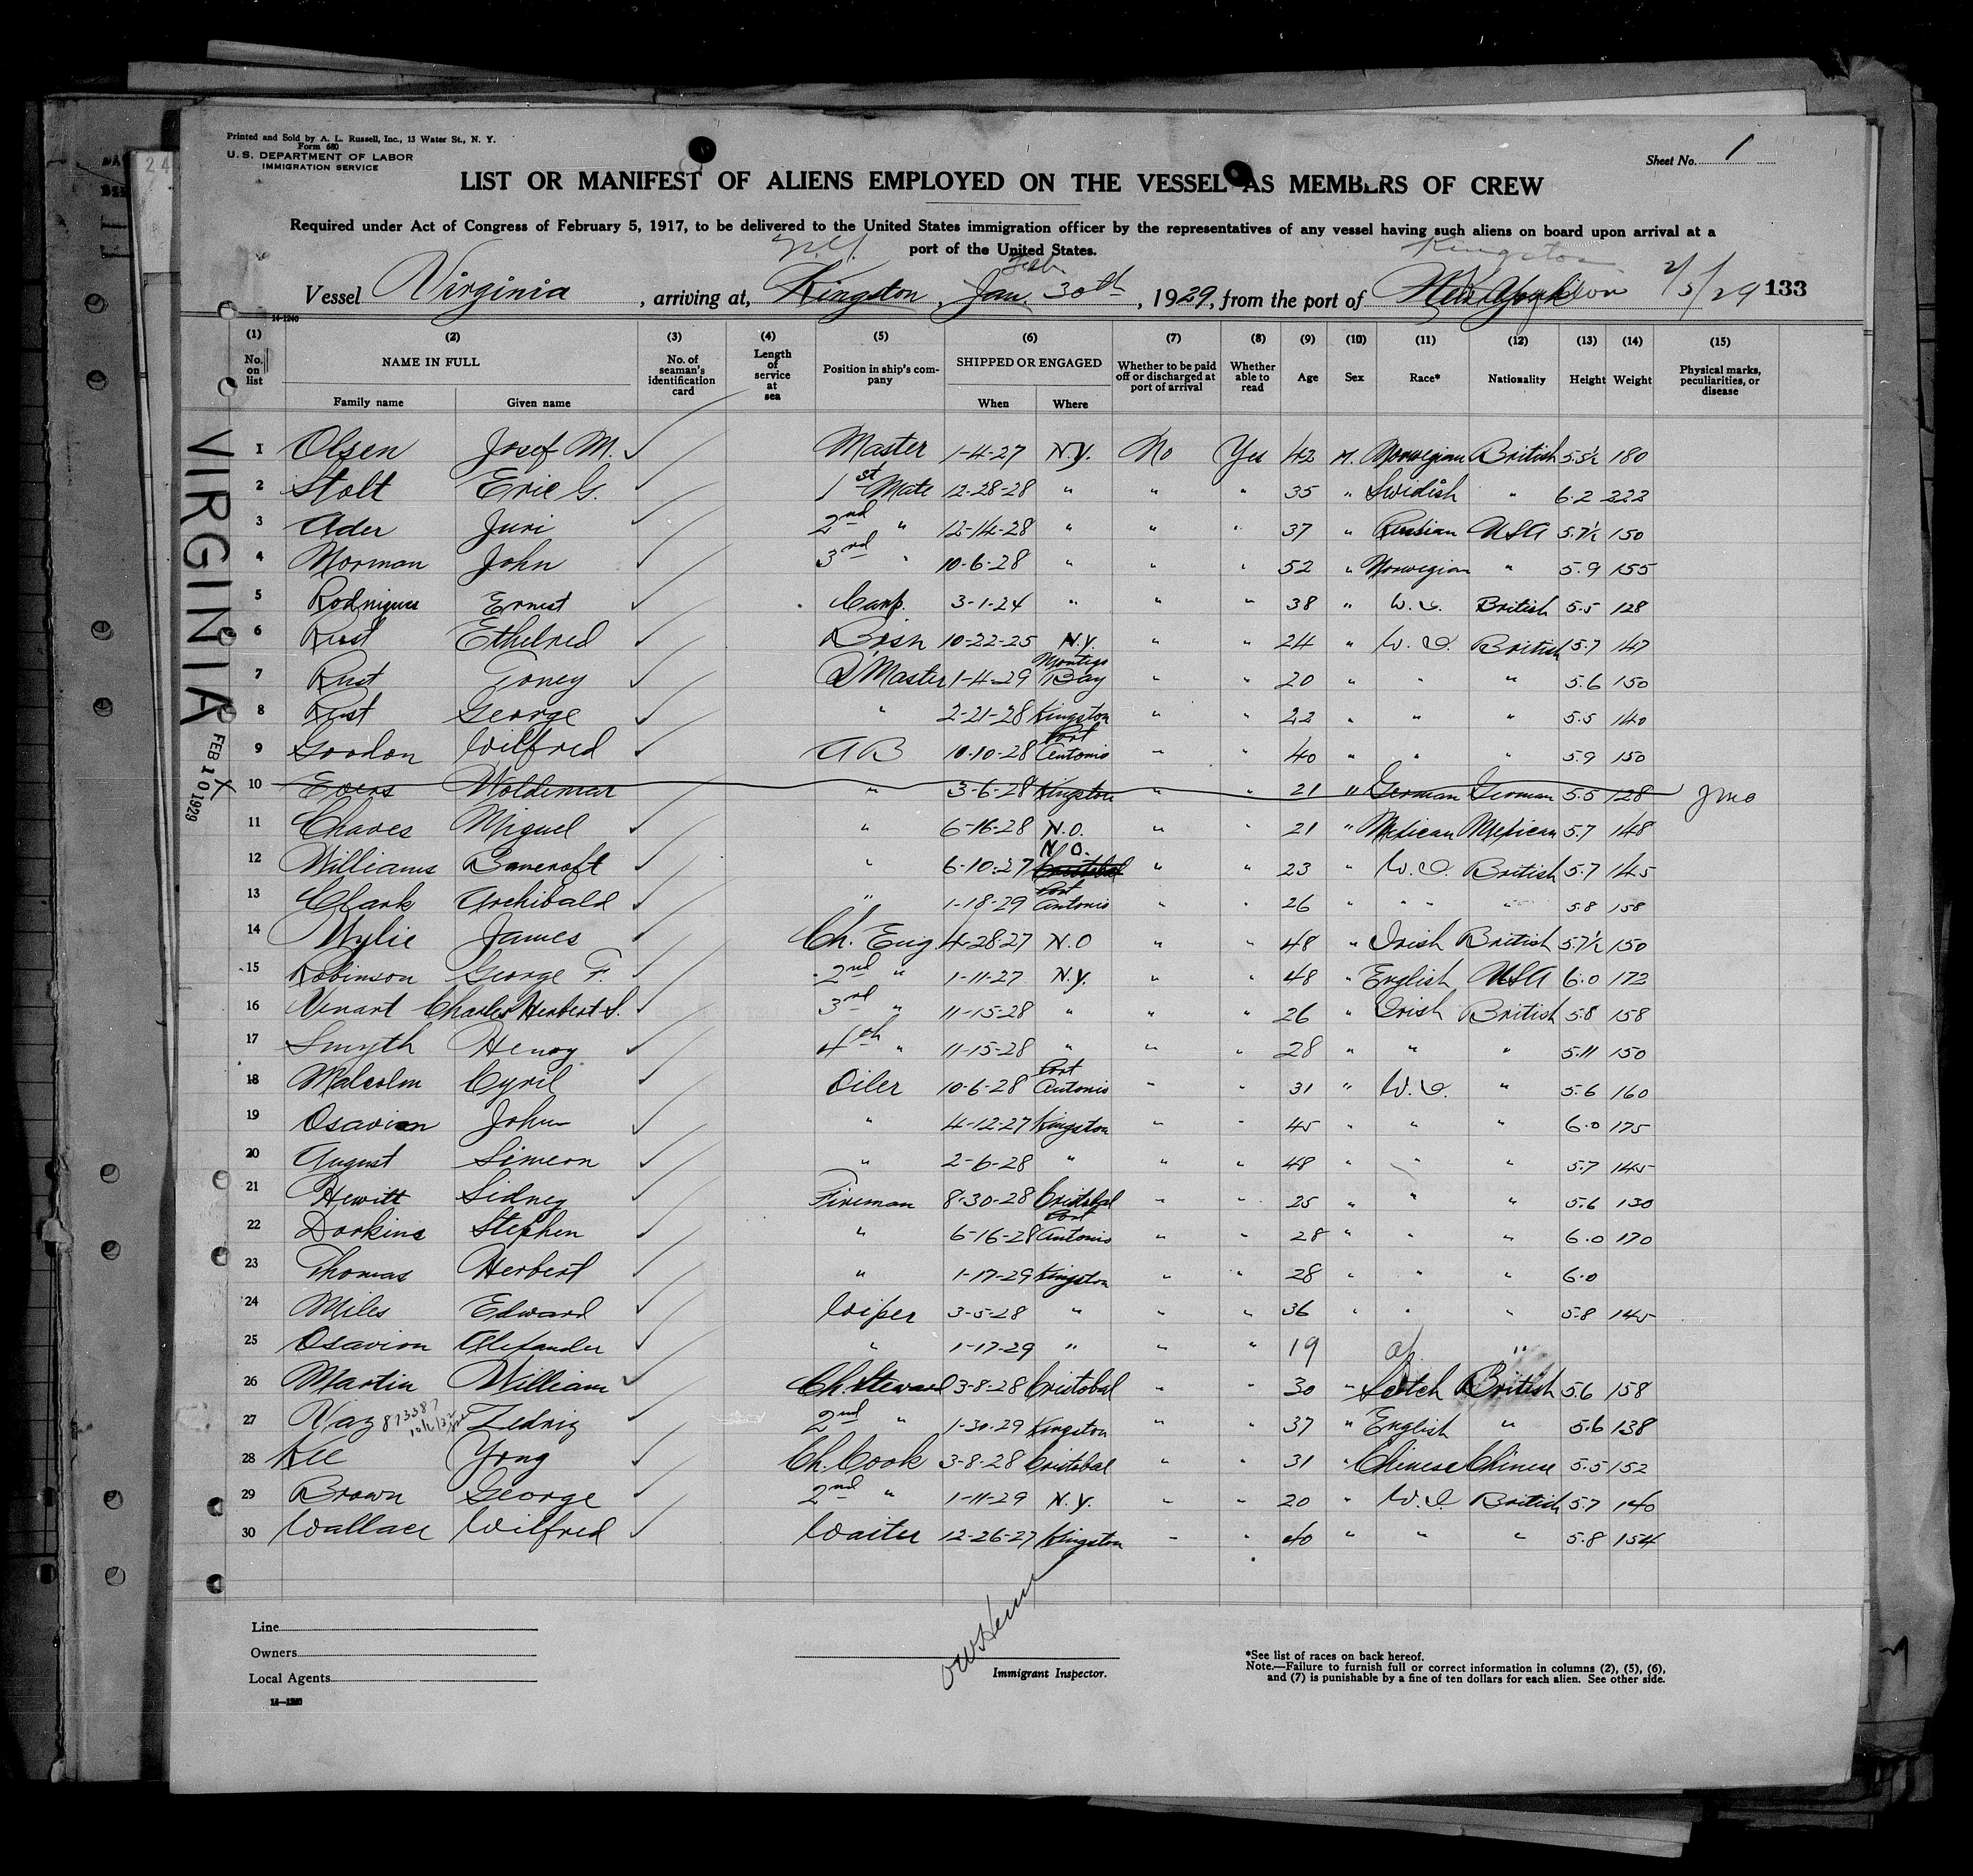 Printed and Sold by A. L. Russell, Inc., 13 Water St., N. Y.
Form 680
U. S. DEPARTMENT OF LABOR
IMMIGRATION SERVICE
Sheet No. 1
LIST OR MANIFEST OF ALIENS EMPLOYED ON THE VESSEL AS MEMBERS OF CREW
Required under Act of Congress of February 5, 1917, to be delivered to the United States immigration officer by the representatives of any vessel having such aliens on board upon arrival at a
port of the United States.
N.Y. Feb. Kingston
Vessel Virginia, arriving at, Kingston, Jan. 30th, 1929, from the port of New York 2/5/29 133
14-1240
(1) (2) (3) (4) (5) (6) (7) (8) (9) (10) (11) (12) (13) (14) (15)
No. on list NAME IN FULL Family name Given name No. of seaman's identification card Length of service at sea Position in ship's company SHIPPED OR ENGAGED When Where Whether to be paid off or discharged at port of arrival Whether able to read Age Sex Race* Nationality Height Weight Physical marks, peculiarities, or disease
VIRGINIA
FEB 10 1929
1 Olsen Josef M. Master 1-4-27 N.Y. No Yes 42 M. Norwegian British 5.5½ 180
2 Stolt Eric G. 1st Mate 12-28-28 " " " 35 " Swidish " 6.2 222
3 Ader Juri 2nd " 12-14-28 " " " 37 " Russian USA 5.7½ 150
4 Morman John 3rd " 10-6-28 " " " 52 " Norwegian " 5.9 155
5 Rodriques Ernest Carp. 3-1-24 " " " 38 " W.I. British 5.5 128
6 Rust Ethelred Bosn 10-22-25 N.Y. " " 24 " W.I. British 5.7 147
7 Rust Toney Q'Master 1-4-29 Montego Bay " " 20 " " " 5.6 150
8 Rust George " 2-21-28 Kingston " " 22 " " " 5.5 140
9 Gordon Wilfred AB 10-10-28 Port Antonio " " 40 " " " 5.9 150
10 Evers Woldemar " 3-6-28 Kingston " " 21 " German German 5.5 128
11 Chaves Miguel " 6-16-28 N.O. " " 21 " Mexican Mexican 5.7 148
12 Williams Bancroft " 6-10-27 N.O. Cristobal " " 23 " W.I. British 5.7 145
13 Clark Archibald " 1-18-29 Port Antonio " " 26 " " " 5.8 158
14 Wylie James Ch. Eng. 4-28-27 N.O " " 48 " Irish British 5.7½ 150
15 Robinson George F. 2nd " 1-11-27 N.Y. " " 48 " English USA 6.0 172
16 Venart Charles Herbert S. 3rd " 11-15-28 " " " 26 " Irish British 5.8 158
17 Smyth Henry 4th " 11-15-28 " " " 28 " " " 5.11 150
18 Malcolm Cyril Oiler 10-6-28 Port Antonio " " 31 " W.I. " 5.6 160
19 Osavion John " 4-12-27 Kingston " " 45 " " " 6.0 175
20 August Simeon " 2-6-28 " " " 48 " " " 5.7 145
21 Hewitt Sidney Fireman 8-30-28 Cristobal " " 25 " " " 5.6 130
22 Dorkins Stephen " 6-16-28 Port Antonio " " 28 " " " 6.0 170
23 Thomas Herbert " 1-17-29 Kingston " " 28 " " " 6.0
24 Miles Edward Wiper 3-5-28 " " " 36 " " " 5.8 145
25 Osavion Alexander " 1-17-29 " " " 19 "
26 Martin William Ch. Steward 3-8-28 Cristobal " " 30 " Scotch British 5.6 158
27 Vaz 873387 Zedriz 2nd " 1-30-29 Kingston " " 37 " English " 5.6 138
28 Kee Yong Ch. Cook 3-8-28 Cristobal " " 31 " Chinese Chinese 5.5 152
29 Brown George 2nd " 1-11-29 N.Y. " " 20 " W.I. British 5.7 140
30 Wallace Wilfred Waiter 12-26-27 Kingston " " 40 " " " 5.8 154
Line
Owners
Local Agents
14-1240
Immigrant Inspector.
*See list of races on back hereof.
Note.—Failure to furnish full or correct information in columns (2), (5), (6),
and (7) is punishable by a fine of ten dollars for each alien. See other side.